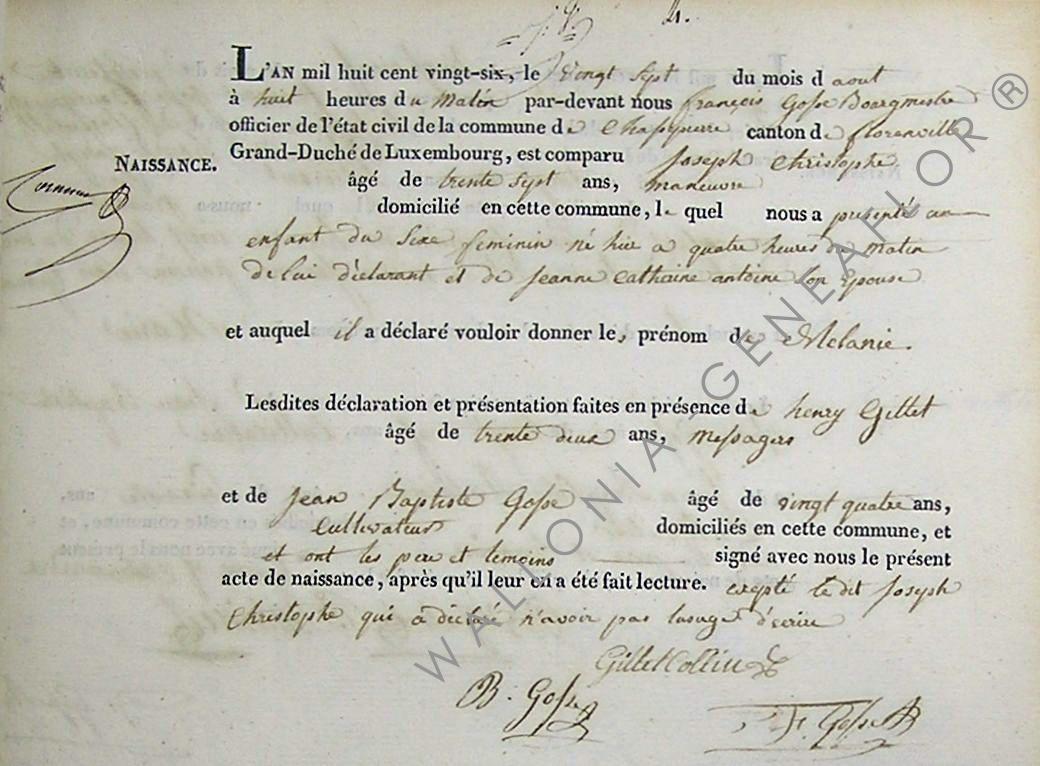 L'AN mil huit cent vingt-six, le vingt sept du mois d aout
à huit heures du Matin par-devant nous françois Gosse Bourgmestre
officier de l'état civil de la commune de Chassepierre canton de florenville
Grand-Duché de Luxembourg, est comparu Joseph Christophe
NAISSANCE.
âgé de trente sept ans, maneuvre
domicilié en cette commune, le quel nous a presenté un
enfant du sexe feminin né hier a quatre heures du matin
de lui déclarant et de Jeanne Catherine antoine son epouse
et auquel il a déclaré vouloir donner les prénom de Melanie.
Lesdites déclaration et présentation faites en présence de henry Gillet
âgé de trente deux ans, messagers
et de Jean Baptiste Gosse âgé de vingt quatre ans,
Cultivateur domiciliés en cette commune, et
et ont les pere et temoins signé avec nous le présent
acte de naissance, après qu'il leur en a été fait lecture. excepté le dit Joseph
Christophe qui a déclaré n'avoir pas lusage d'écrire
Gillet Collin
B. Gosse
F. Gosse
WALLONIA GENEAFLOR ®